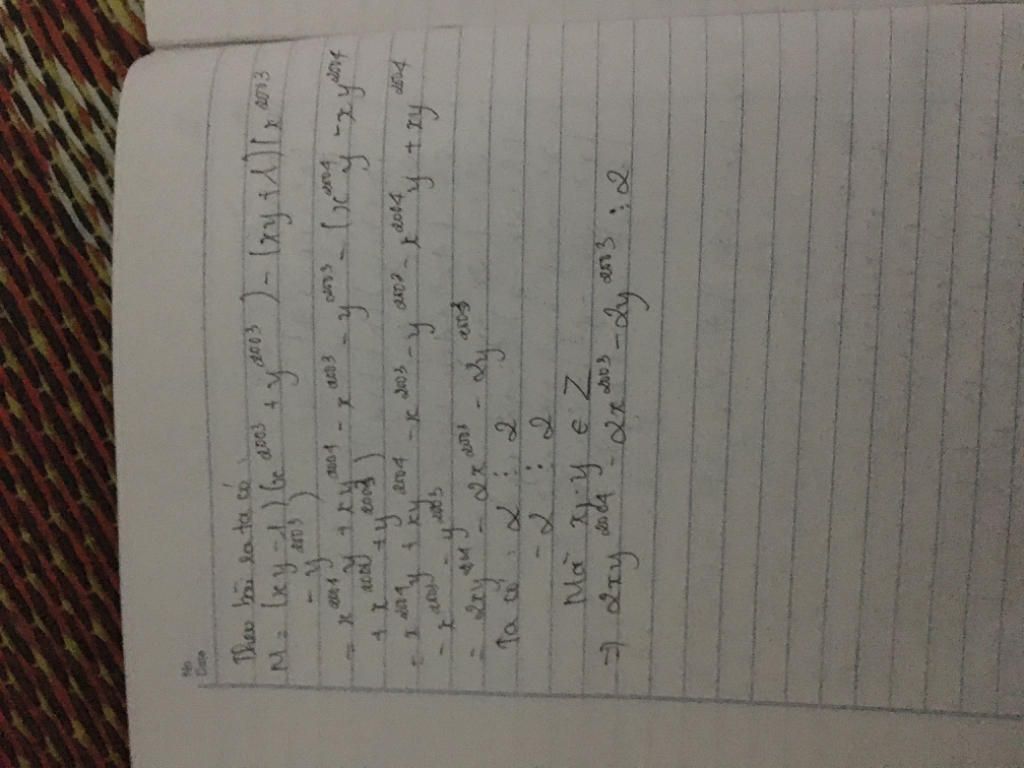 No
Date
Theo bài ra ta có
N = (xy - 1)(x^2003 + y^2003) - (xy + 1)(x^2003
- y^2003)
= x^2004 y + xy^2004 - x^2003 - y^2003 - (x^2004 y - xy^2004
+ x^2003 + y^2003)
= x^2004 y + xy^2004 - x^2003 - y^2003 - x^2004 y + xy^2004
- x^2003 - y^2003
= 2xy^2004 - 2x^2003 - 2y^2003
Ta có : 2 ⋮ 2
- 2 ⋮ 2
Mà x, y ∈ Z
=> 2xy^2004 - 2x^2003 - 2y^2003 ⋮ 2